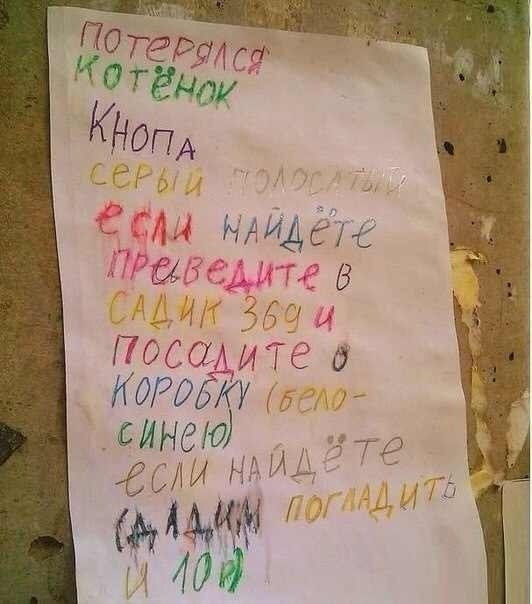 ПОТЕРЯЛСЯ
КОТЁНОК
КНОПА
СЕРЫЙ ПОЛОСАТЫЙ
если НАЙДЁТЕ
В
САДИК 369 и
ПОСАДИТЕ
КОРОБКУ (бело-
синею)
если НАЙДЁТЕ
ДАДИМ ПОГЛАДИТЬ
и 10р